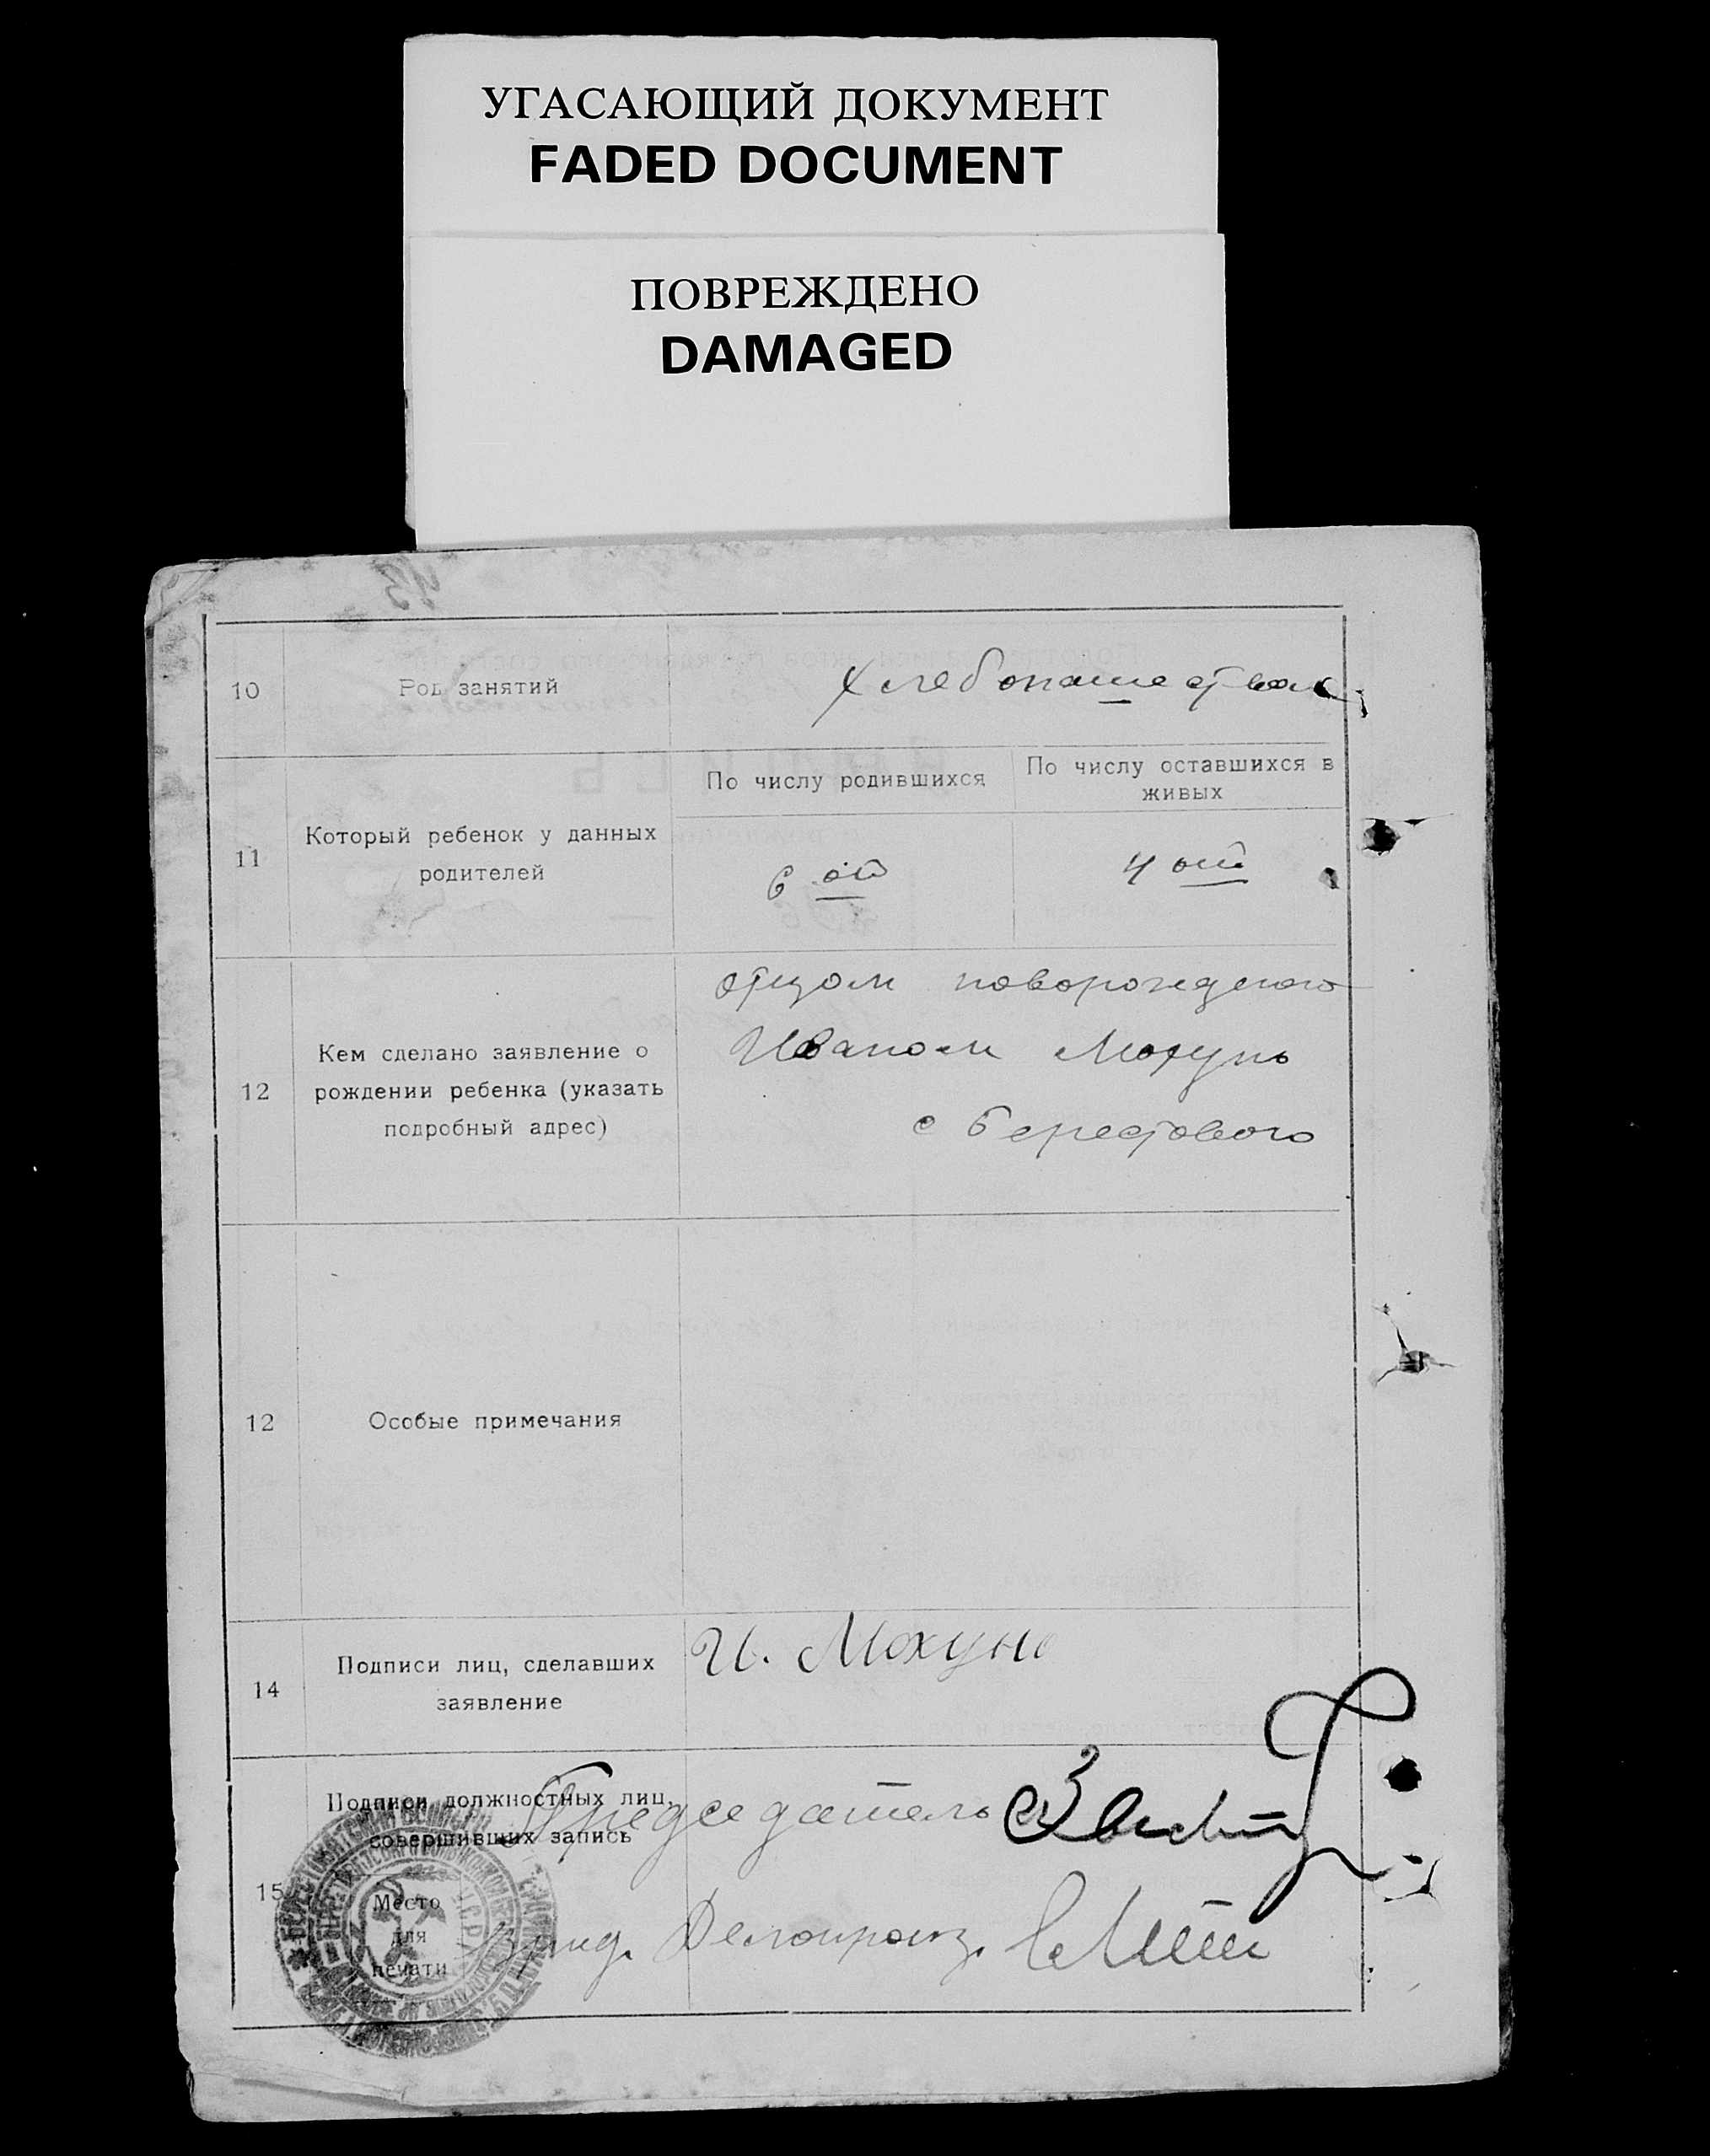 УГАСАЮЩИЙ ДОКУМЕНТ
FADED DOCUMENT
ПОВРЕЖДЕНО
DAMAGED
10
Род занятий
Хлебопашество
11
Который ребенок у данных
родителей
По числу родившихся
По числу оставшихся в
живых
6 ой
4 ый
12
Кем сделано заявление о
рождении ребенка (указать
подробный адрес)
отцом новорожденого
Иваном Мохунь
с Берестового
12
Особые примечания
14
Подписи лиц, сделавших
заявление
И. Мохунь
15
Подписи должностных лиц,
совершивших запись
Председатель
Место
для
печати
Делопроиз.